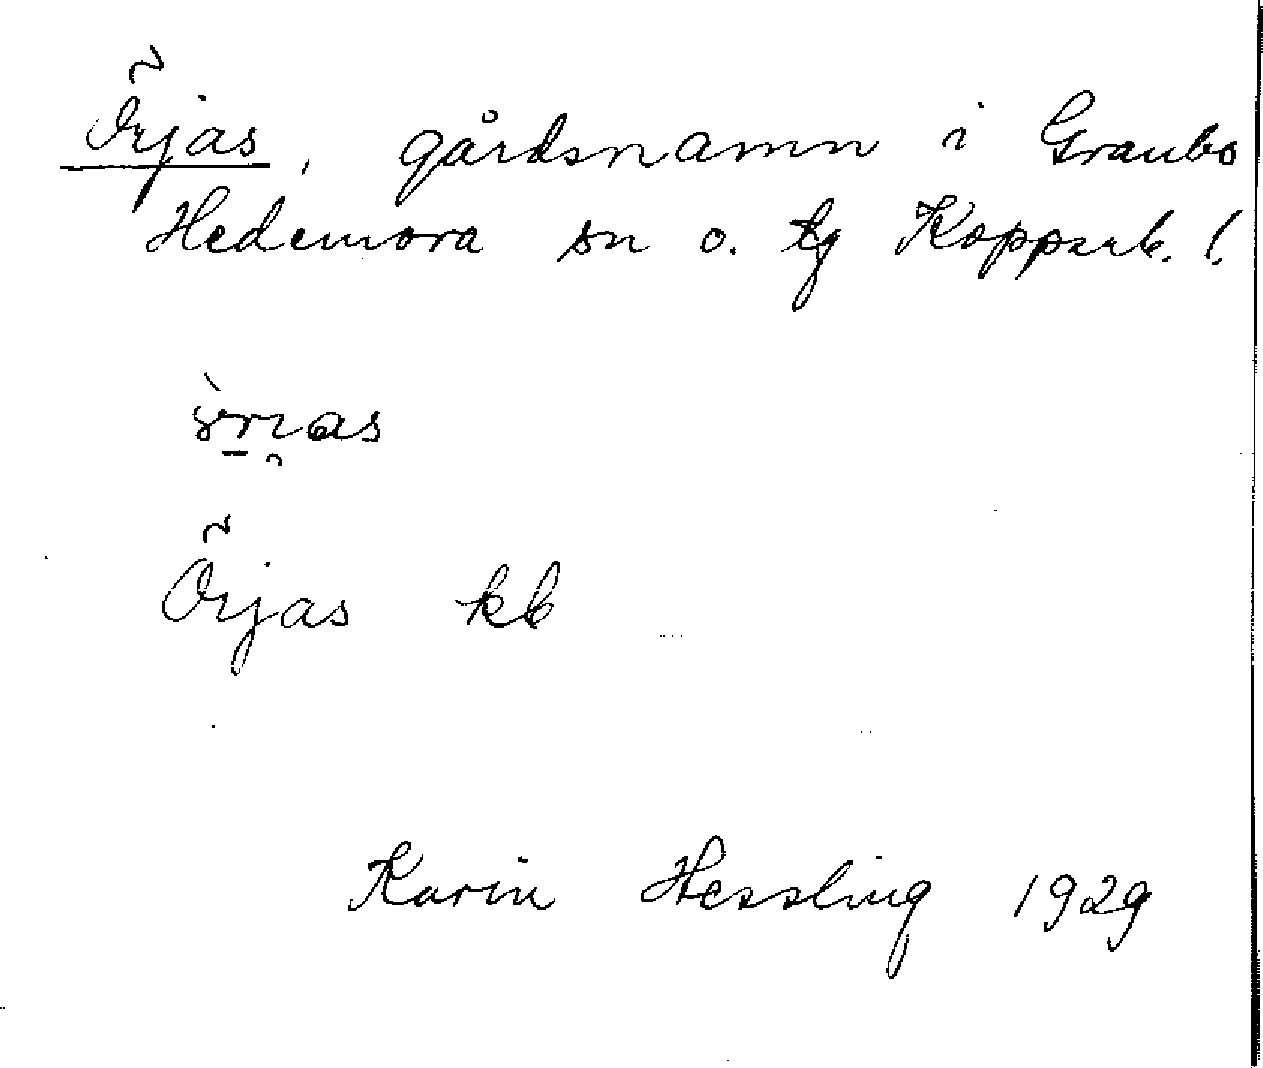 Örjas, gårdsnamn i Graubo
Hedemora sn o. tg Kopparb. l.
Örjas kb
Karin Hessling 1929